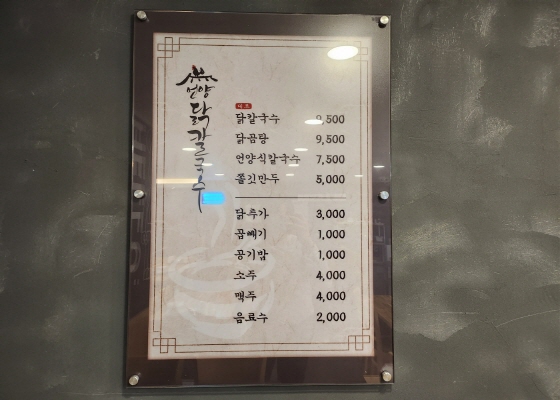 언양
닭칼국수
대표
닭칼국수 9,500
닭곰탕 9,500
언양식칼국수 7,500
쫄깃만두 5,000
닭추가 3,000
곱빼기 1,000
공기밥 1,000
소주 4,000
맥주 4,000
음료수 2,000